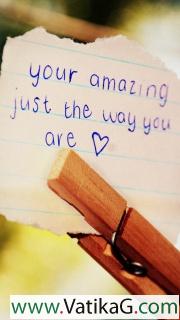 your amazing
just the way you
are ♡
www.VatikaG.com